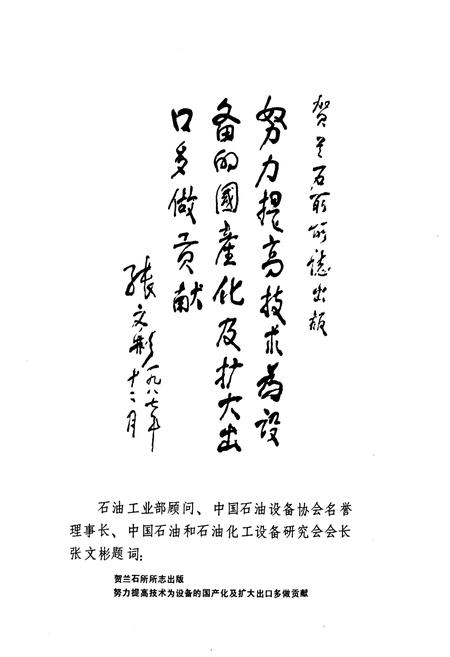 贺兰石所所誌出版
努力提高技术為设
备的國產化及扩大出
口多做贡献
张文彬
一九八七年
十二月
石油工业部顾问、中国石油设备协会名誉
理事长、中国石油和石油化工设备研究会会长
张文彬题词:
贺兰石所所志出版
努力提高技术为设备的国产化及扩大出口多做贡献